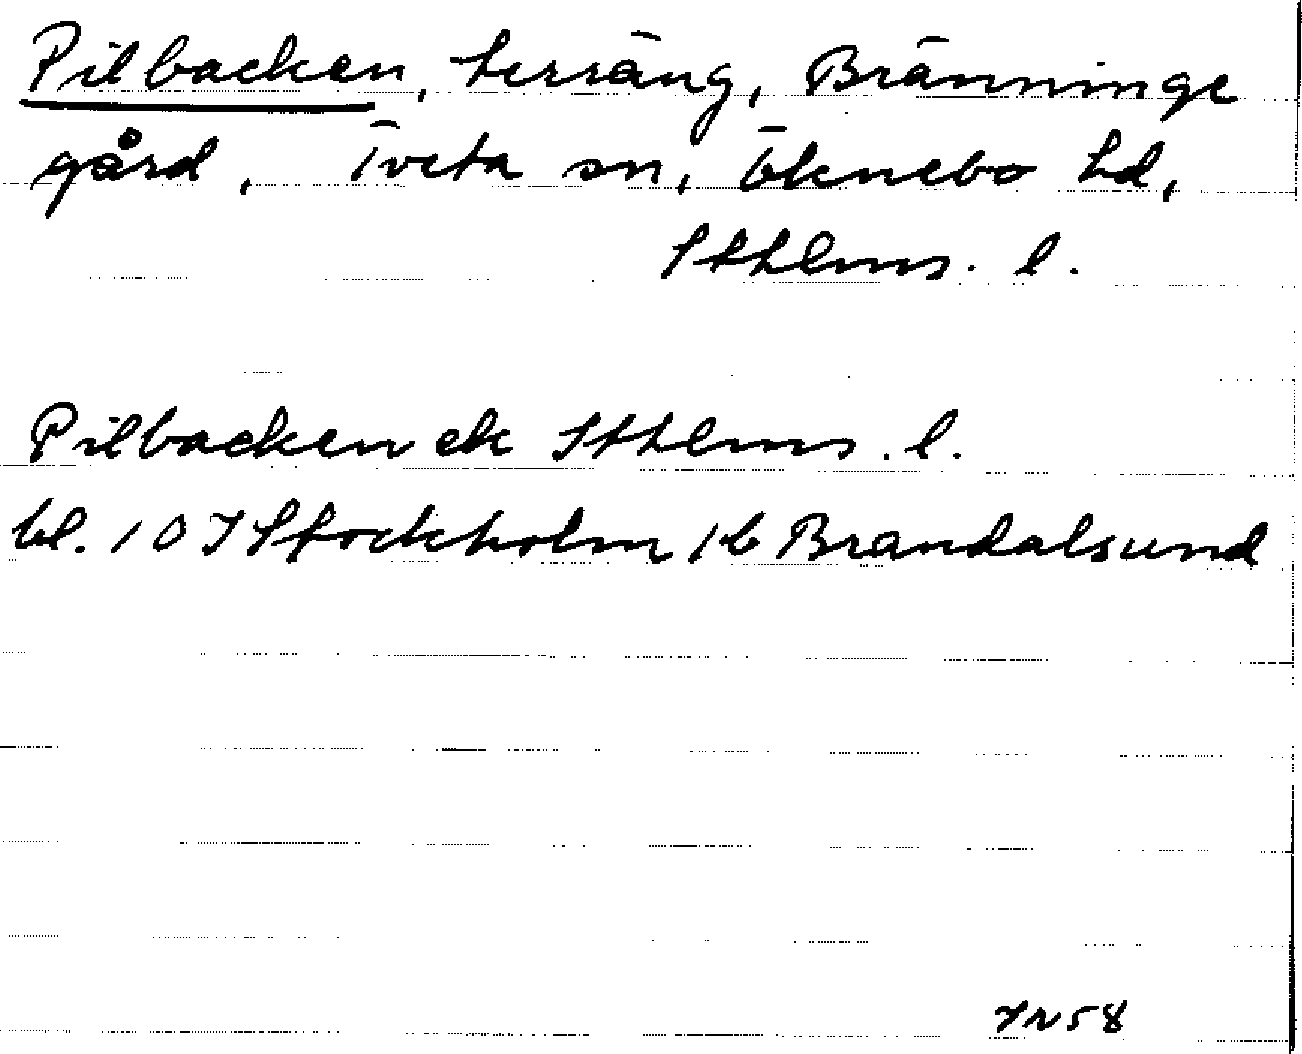 Pilbacken, terräng, Bränninge
gård, Tveta sn, Öknebo hd,
Sthlms. l.
Pilbacken ek Sthlms. l.
bl. 10 I Stockholm 1b Brandalsund
58